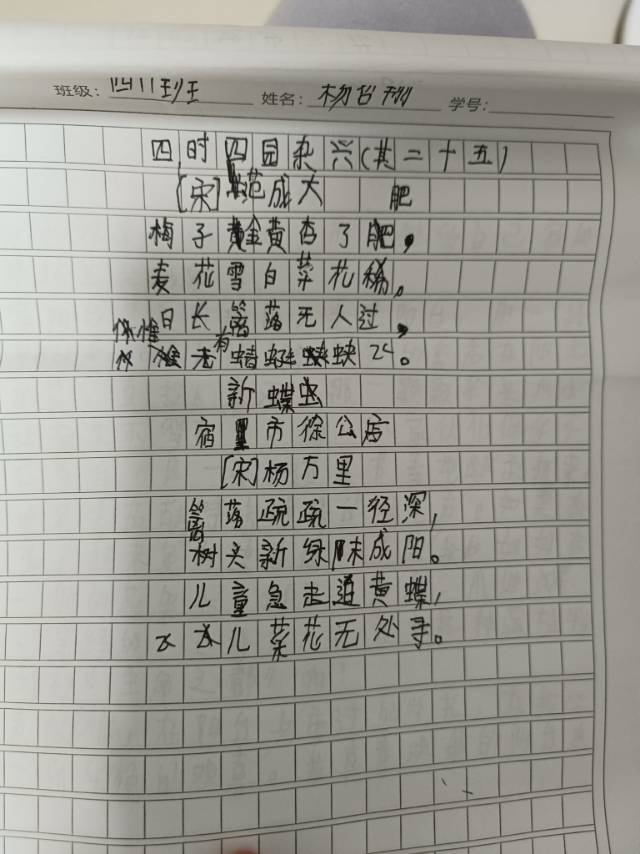 班级：四(1)班 姓名：杨 学号：
四时四园杂兴(其二十五)
[宋]范成大 肥
梅子金黄杏了肥，
麦花雪白菜花稀。
日长篱落无人过，
惟有蜻蜓蛱
新蝶
宿市徐公店
[宋]杨万里
篱落疏疏一径深，
树头新绿成阳。
儿童急走追黄蝶，
儿菜花无处寻。